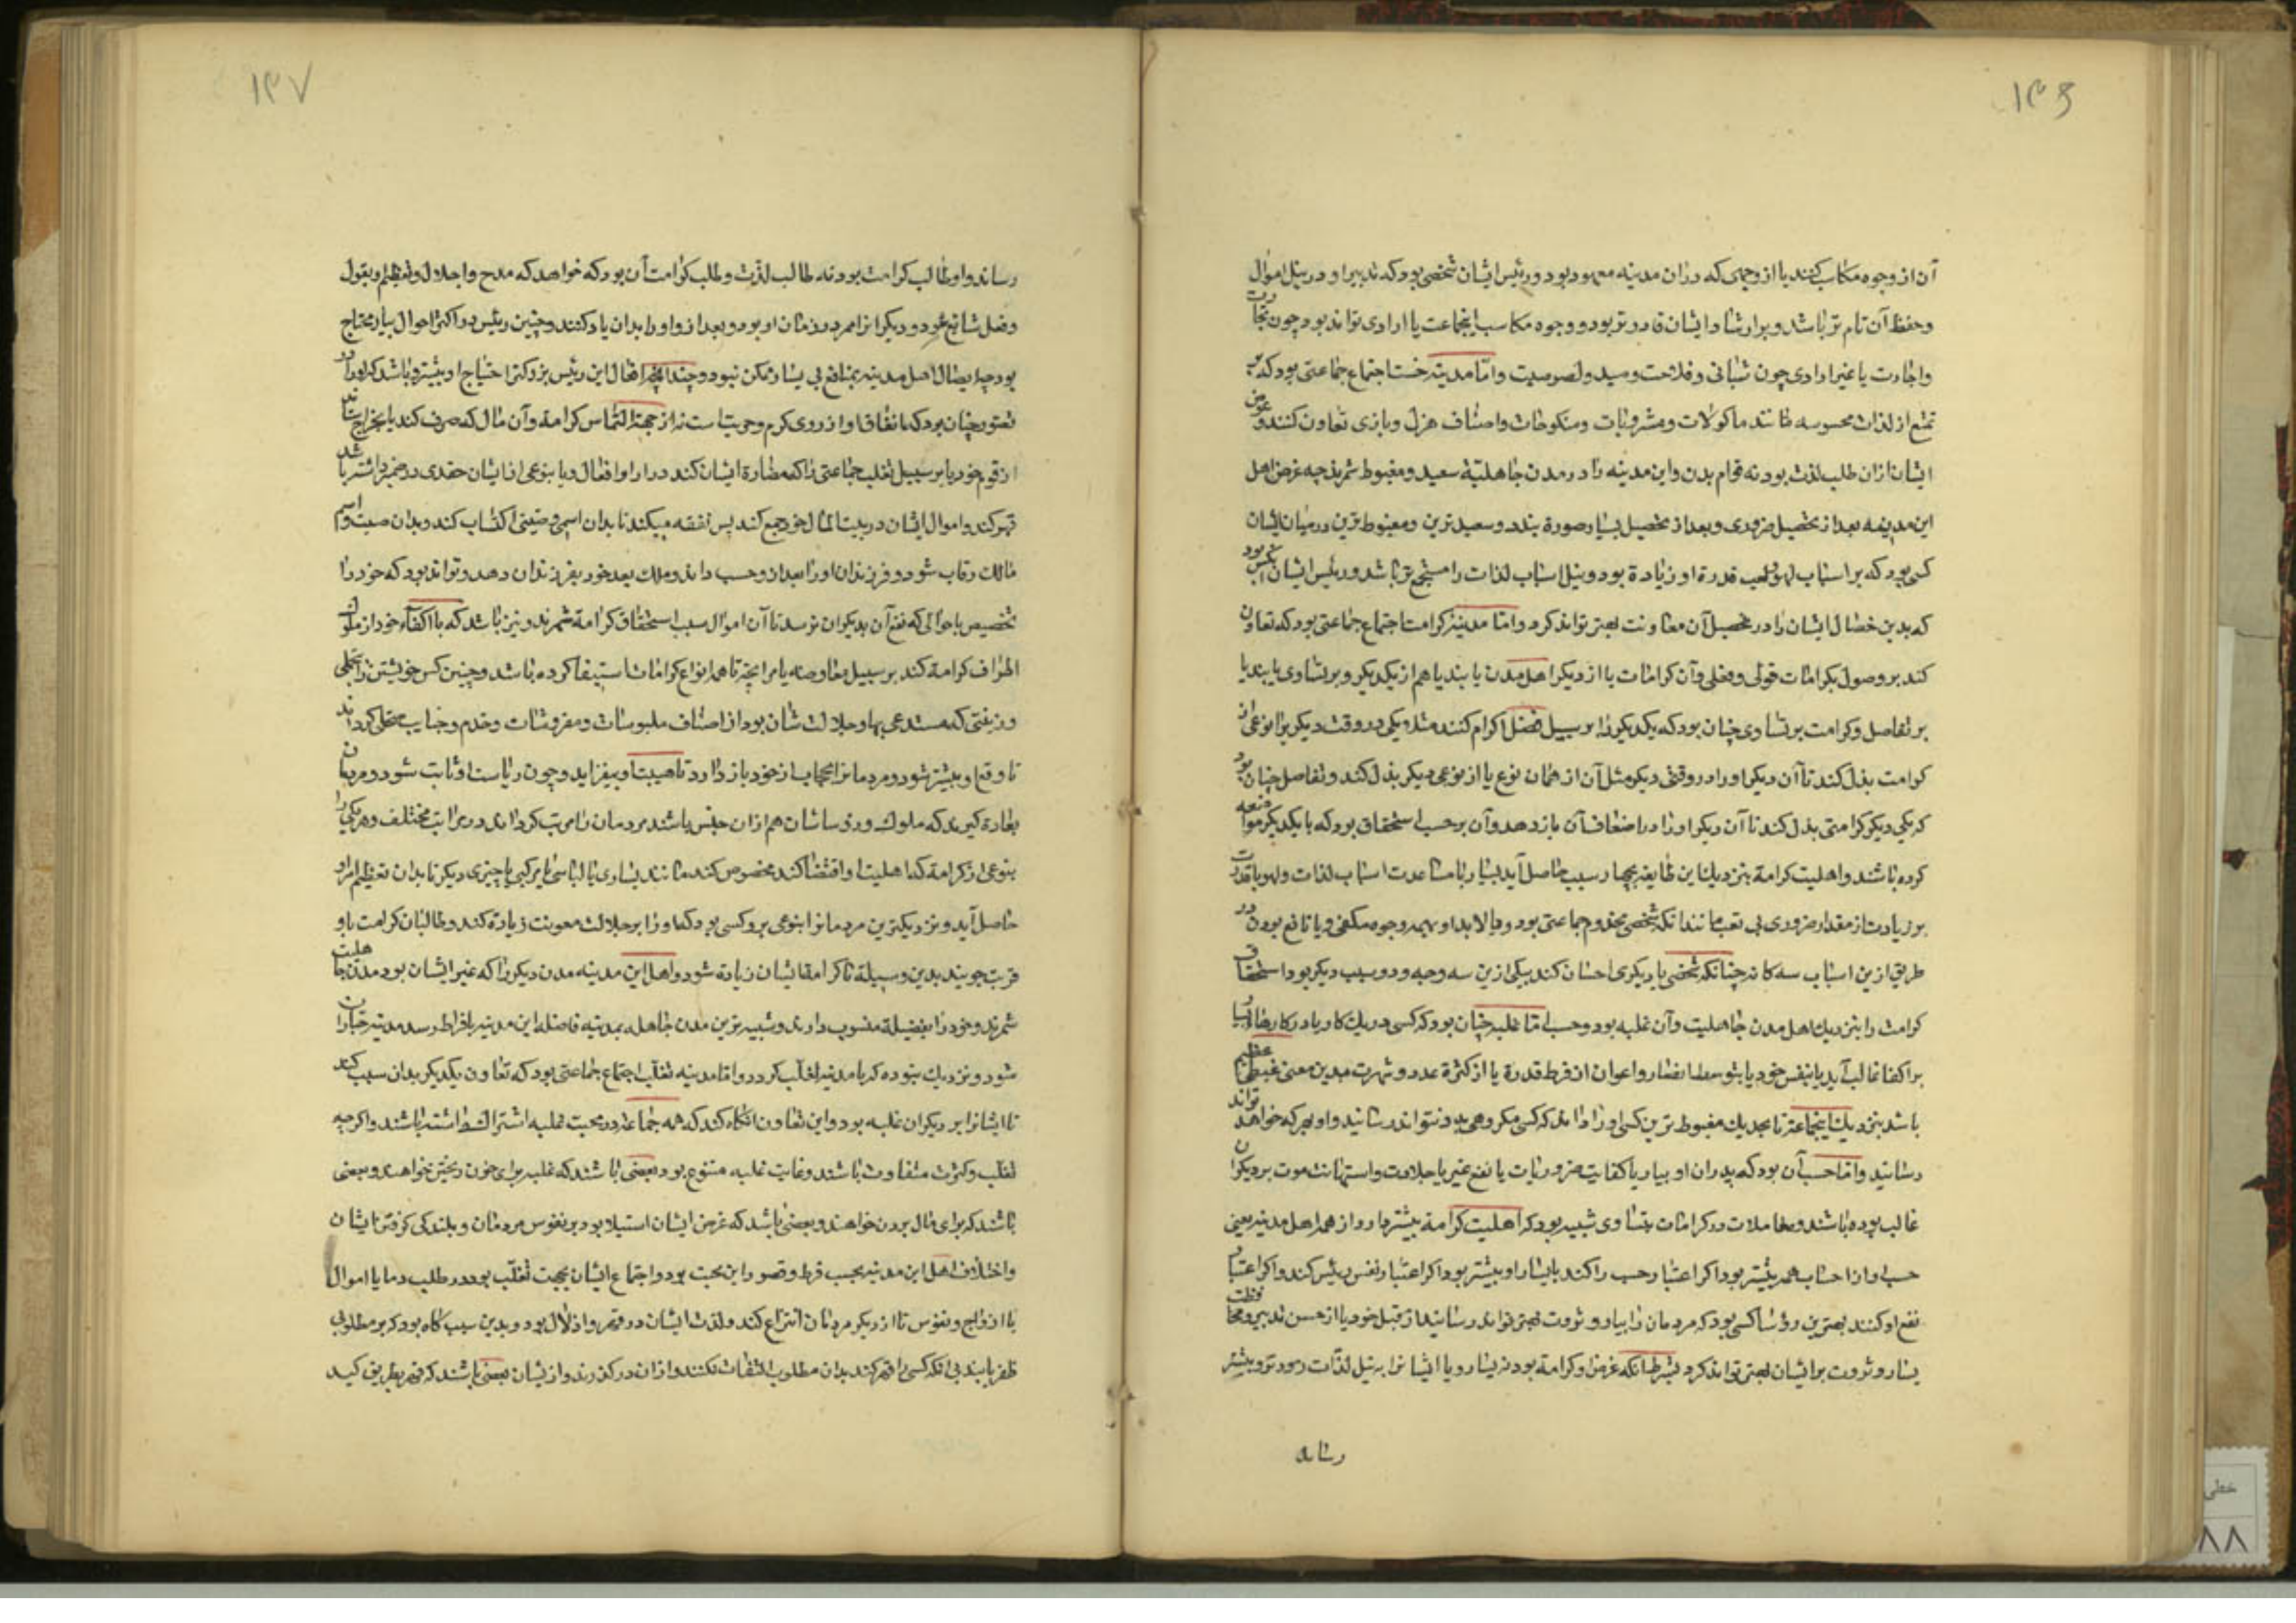 ۱۳۶
آن از وجوه مکاسب کنند یا از وجهی که دران مدینه معهود بود و رئیس ایشان شخصی بود که تدبیر او در نیل اموال
و حفظ آن تام تر باشد و بر ارشاد ایشان قادرتر بود و وجوه مکاسب اینجماعت یا ارادی تواند بود چون تجارت
و اجارت یا غیر ارادی چون شبانی و فلاحت و صید و لصوصیت و امّا مدینه خست اجتماع جماعتی بود که بر
تمتع از لذات محسوسه مانند ماکولات و مشروبات و منکوحات و اصناف هزل و بازی تعاون کنند و غرض
ایشان ازان طلب لذت بود نه قوام بدن و این مدینه را در مدن جاهلیّة سعید و مغبوط شمرند چه غرض اهل
این مدینه بعد از تحصیل ضروری و بعد از تحصیل یسار صورة بندد و سعیدترین و مغبوط ترین در میان ایشان
کسی بود که بر اسباب لهو و لعب قدرة او زیادة بود و نیل اسباب لذات را مستجمع تر باشد و رئیس ایشان آنکس بود
که بدین خصال ایشان را در تحصیل آن معاونت بهتر تواند کرد و امّا مدینه کرامت اجتماع جماعتی بود که تعاون
کنند بر وصول بکرامات قولی و فعلی و آن کرامات یا از دیکر اهل مدن یابند یا هم از یکدیکر و بر تساوی یابند یا
بر تفاضل و کرامت بر تساوی چنان بود که یکدیکر را بر سبیل فضل اکرام کنند مثلا یکی در وقت دیکر را نوعی از
کرامت بذل کند تا آن دیکر او را در وقتی دیکر مثل آن از همان نوع یا از نوعی دیکر بذل کند و تفاضل چنان بود
که یکی دیکر کرامتی بذل کند تا آن دیکر او را در اضعاف آن باز دهد و آن بر حسب استحقاق بود که با یکدیکر مواضعه
کرده باشند و اهلیت کرامة بنزدیک این طایفه بچهار سبب حاصل آید یسار یا مساعدت اسباب لذات و لهو یا قدرت
بر زیادت از مقدار ضروری بی تعب مانند آنکه شخصی مخدوم جماعتی بود و مالابد او بهمه وجوه مکفی و یا نافع بودن در
طریق ازین اسباب سه کانه چنانکه شخصی با دیکری احسان کند بیکی ازین سه وجه و دو سبب دیکر بود استحقاق
کرامت را بنزدیک اهل مدن جاهلیت و آن غلبه بود و حسب امّا غلبه چنان بود که کسی در یک کار یا در کارهای بسیار
بر اکفا غالب آید یا بنفس خود یا بتوسط انصار و اعوان از فرط قدرة یا از کثرة عدد و شهرت بدین معنی غبطی عظیم
باشد بنزدیک اینجماعة تا بحدیکه مغبوط ترین کسی او را دانند که کسی مکروهی بدو نتواند رسانید و او بهر که خواهد تواند
رسانید و امّا حسب آن بود که پدران او بیسار یا کفایت ضروریات یا نفع غیر یا جلادت و استهانت موت بر دیکران
غالب بوده باشند و معاملات در کرامات بتساوی شبیه بود که اهلیت کرامة بیشتر دارد از همه اهل مدینه یعنی
حسب او از احساب همه بیشتر بود اکر اعتبار حسب را کند یا یسار او بیشتر بود اکر اعتبار نفس رئیس کند و اکر اعتبار
نفع او کنند بهترین رؤسا کسی بود که مردمان را بیسار و ثروت بهتر تواند رسانید از قبل خود یا از حسن تدبیر و محافظت
یسار و ثروت بر ایشان بهتر تواند کرد بشرط انکه غرض او کرامة بود نه یسار و یا ایشانرا به نیل لذّات زودتر و بیشتر
رساند
۱۳۷
رساند و او طالب کرامت بود نه طالب لذّت و طلب کرامت آن بود که خواهد که مدح و اجلال و تعظیم او بقول
و فعل شایع شود و دیکرانرا امر در زمان او بود و بعد از و او را بدان یاد کنند و چنین رئیس در اکثر احوال بیسار محتاج
بود چه ایصال اهل مدینه بمنافع بی یسار ممکن نبود و چندانچه افعال این رئیس بزرکتر احتیاج او بیشتر و باشد که او را در
تصور چنان بود که انفاق او از روی کرم و حریت است نه از جهة التماس کرامة و آن مال که صرف کند یا بخراج ستاند
از قوم خود یا بر سبیل تغلب جماعتی را که مضادة ایشان کند در آرا و افعال و یا بنوعی از ایشان حقدی در ضمیر داشته باشد
قهر کند و اموال ایشان در بیت المال خود جمع کند پس نفقه میکند تا بدان اسمی و ضیتی اکتساب کند و بدان صیت و اسم
مالک رقاب شود و فرزندان او را بعد از و حسب دانند و ملک بعد خود بفرزندان دهد و تواند بود که خود را
تخصیص باحوالی که نفع آن بدیکران نرسد تا آن اموال سبب استحقاق کرامة شمرند و نیز باشد که با اکفاء خود از ملوک
اطراف کرامة کند بر سبیل معاوضه یا مرابحه تا همه انواع کرامات استیفا کرده باشد و چنین کس خویشتن را بتجملی
و زینتی که مستدعی بها و جلالت شان بود از اصناف ملبوسات و مفروشات و خدم و جنایب متحلی کرداند
تا وقع او بیشتر شود و مردمانرا بحجاب از خود باز دارد تا هیبت او بیفزاید و چون ریاست او ثابت شود و مردمان
بعادة کیرند که ملوک و رؤساشان هم ازان جنس باشند مردمان را مرتب کرداند در مراتب مختلف و هر یکی را
بنوعی از کرامة که اهلیت او اقتضا کند مخصوص کند مانند یساری یا لباسی یا مرکبی یا چیزی دیکر تا بدان تعظیم امر او
حاصل آید و نزدیکترین مردمانرا بنوعی برو کسی بود که او را بر جلالت معونت زیادة کند و طالبان کرامت باو
قربت جویند بدین وسیلة تا کرامة ایشان زیادة شود و اهل این مدینه مدن دیکر را که غیر ایشان بود مدن جاهلیت
شمرند و خود را بفضیلة منسوب دارند و شبیه ترین مدن جاهله بمدینه فاضله این مدینه بافراط رسد مدینه جباران
شود و نزدیک بود که با مدینه تغلّب کردد و امّا مدینه تغلّب اجتماع جماعتی بود که تعاون یکدیکر بدان سبب کنند
تا ایشانرا بر دیکران غلبه بود و این تعاون انکاه کنند که همه جماعة در محبت غلبه اشتراک داشته باشند و اکرچه
بقلّت و کثرت متفاوت باشند و غایت غلبه متنوع بود بعضی باشند که غلبه برای خون ریختن خواهند و بعضی
باشند که برای مال بردن خواهند و بعضی باشد که غرض ایشان استیلا بود بر نفوس مردمان و ببندکی کرفتن ایشان
و اختلاف اهل این مدینه بحسب فرط و قصور این محبت بود و اجتماع ایشان بجهت تغلّب بود در طلب دما یا اموال
یا ازواج و نفوس تا از دیکر مردمان انتزاع کنند و لذت ایشان در قهر و اذلال بود و بدین سبب کاه بود که بر مطلوبی
ظفر یابند بی انکه کسی را قهر کنند بدان مطلوب التفات نکنند و ازان درکذرند و از ایشان بعضی باشند که قهر بطریق کید
خطی
۸۸